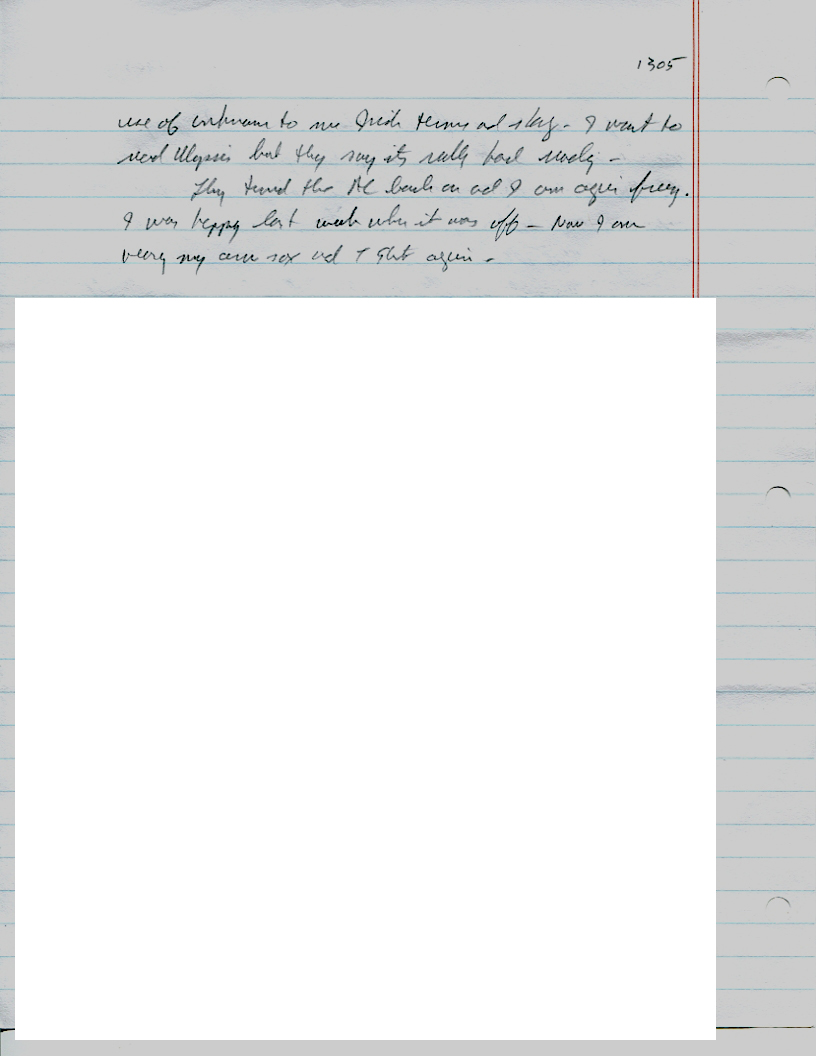 1305
use of unknown to me Irish terms and slang - I want to
read Ulysses but they say its really hard reading -
They turned the AC back on and I am again freezing.
I was happy last week when it was off - Now I am
wearing my arm sox and T Shirt again -